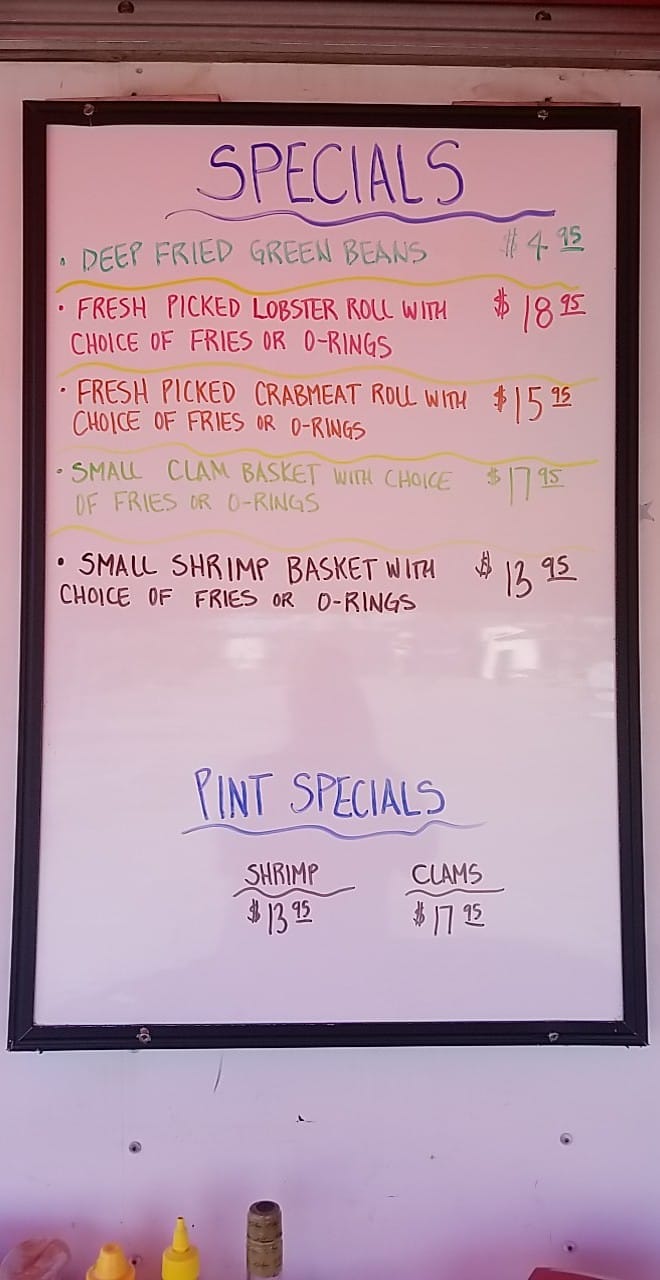 SPECIALS
• DEEP FRIED GREEN BEANS $4.95
• FRESH PICKED LOBSTER ROLL WITH $18.95
CHOICE OF FRIES OR O-RINGS
• FRESH PICKED CRABMEAT ROLL WITH $15.95
CHOICE OF FRIES OR O-RINGS
• SMALL CLAM BASKET WITH CHOICE $17.95
OF FRIES OR O-RINGS
• SMALL SHRIMP BASKET WITH $13.95
CHOICE OF FRIES OR O-RINGS
PINT SPECIALS
SHRIMP CLAMS
$13.95 $17.95